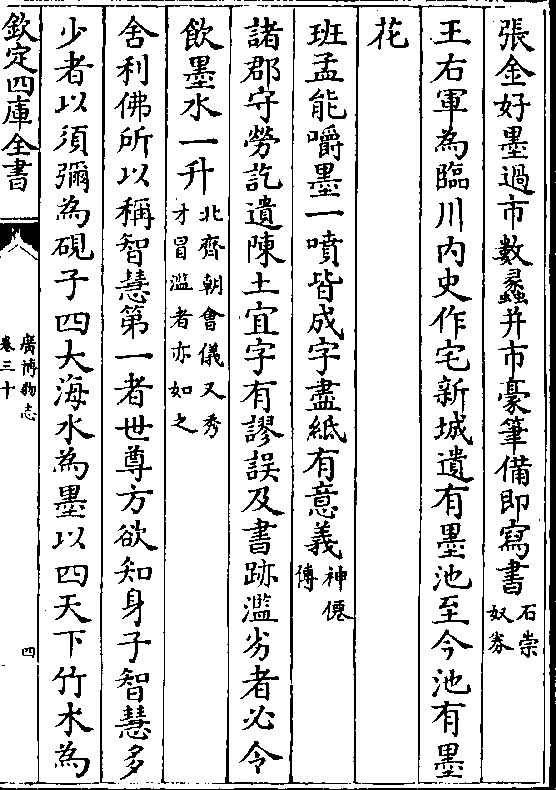 張金好墨過市數蠡并市豪筆備即寫書石崇奴券
王右軍為臨川内史作宅新城遺有墨池至今池有墨
花
班孟能嚼墨一噴皆成字盡紙有意義神僊傳
諸郡守勞訖遺陳土宜字有謬誤及書跡濫劣者必令
飲墨水一升北齊朝會儀又秀才冒濫者亦如之
舍利佛所以稱智慧第一者世尊方欲知身子智慧多
少者以須彌為硯子四大海水為墨以四天下竹木為
欽定四庫全書
廣博物志
卷三十
四